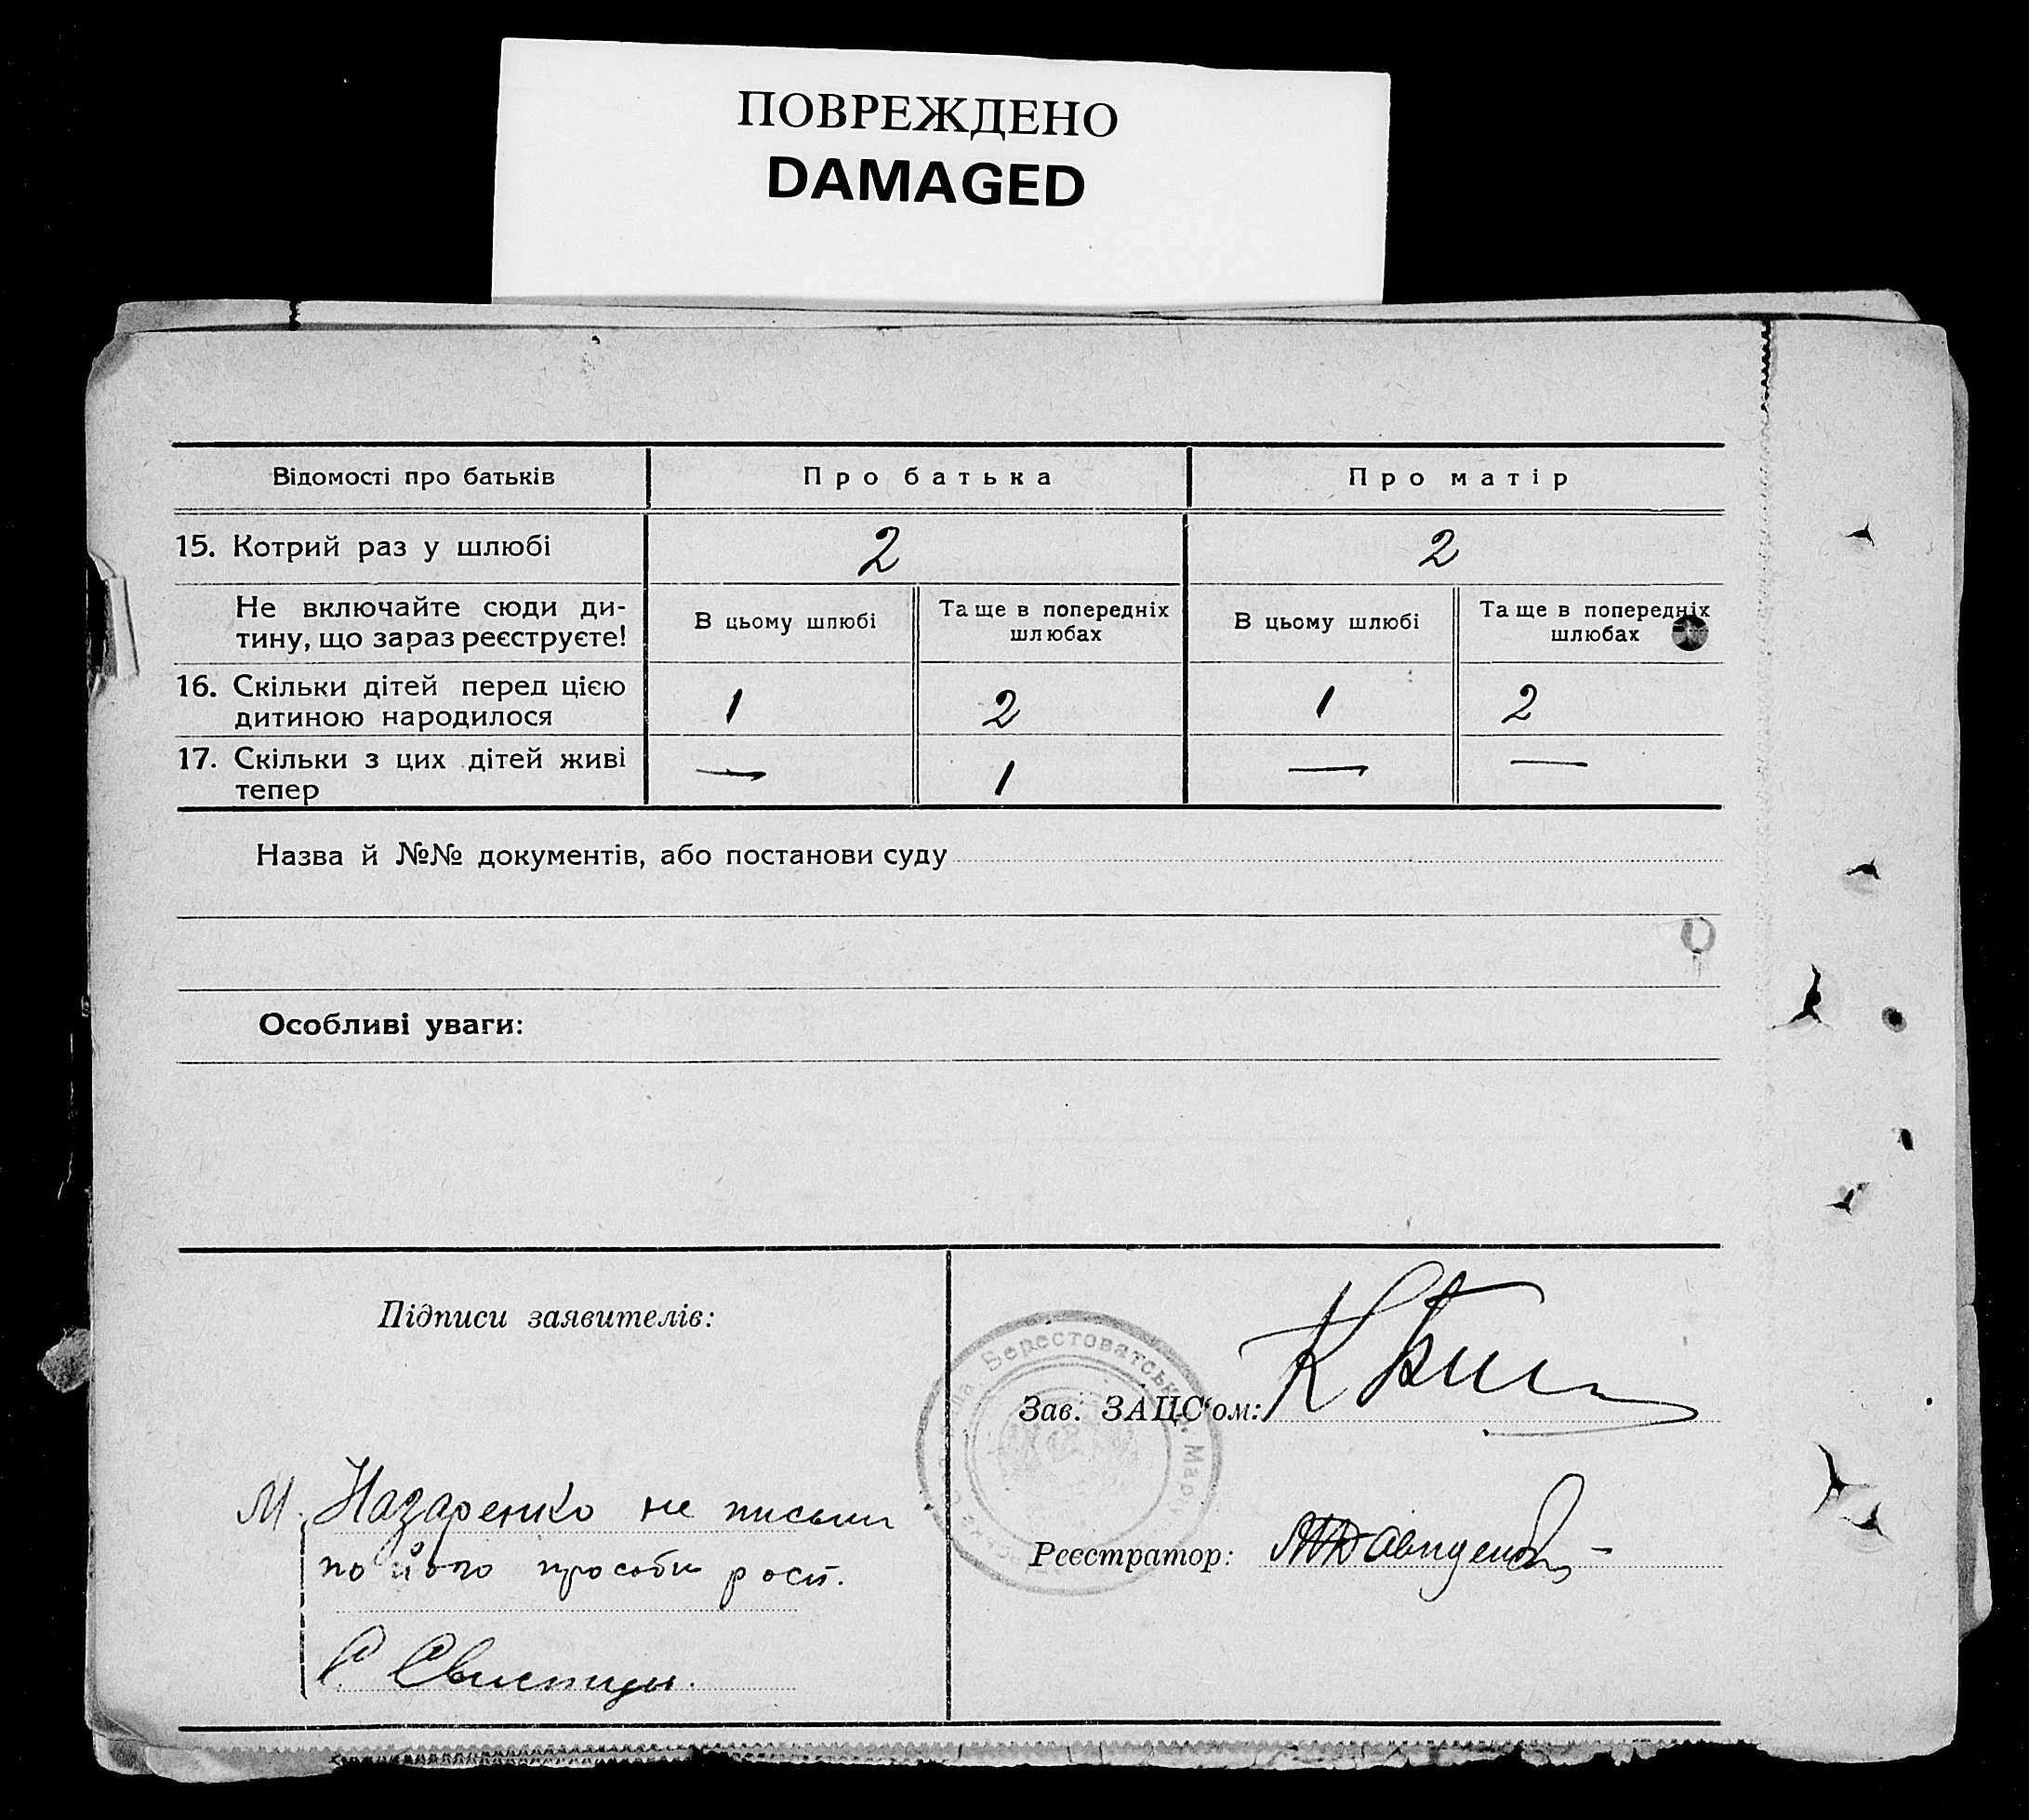 ПОВРЕЖДЕНО
DAMAGED
Відомості про батьків
Про батька
Про матір
15. Котрий раз у шлюбі
2
2
Не включайте сюди ди-
тину, що зараз реєструєте!
В цьому шлюбі
Та ще в попередніх
шлюбах
В цьому шлюбі
Та ще в попередніх
шлюбах
16. Скільки дітей перед цією
дитиною народилося
1
2
1
2
17. Скільки з цих дітей живі
тепер
—
1
—
—
Назва й №№ документів, або постанови суду
Особливі уваги:
Підписи заявителів:
Берестоватсько
Марі
Зав. ЗАЦС'ом:
М. Назаренко не письм
по його прособи росп.
Реєстратор:
С.